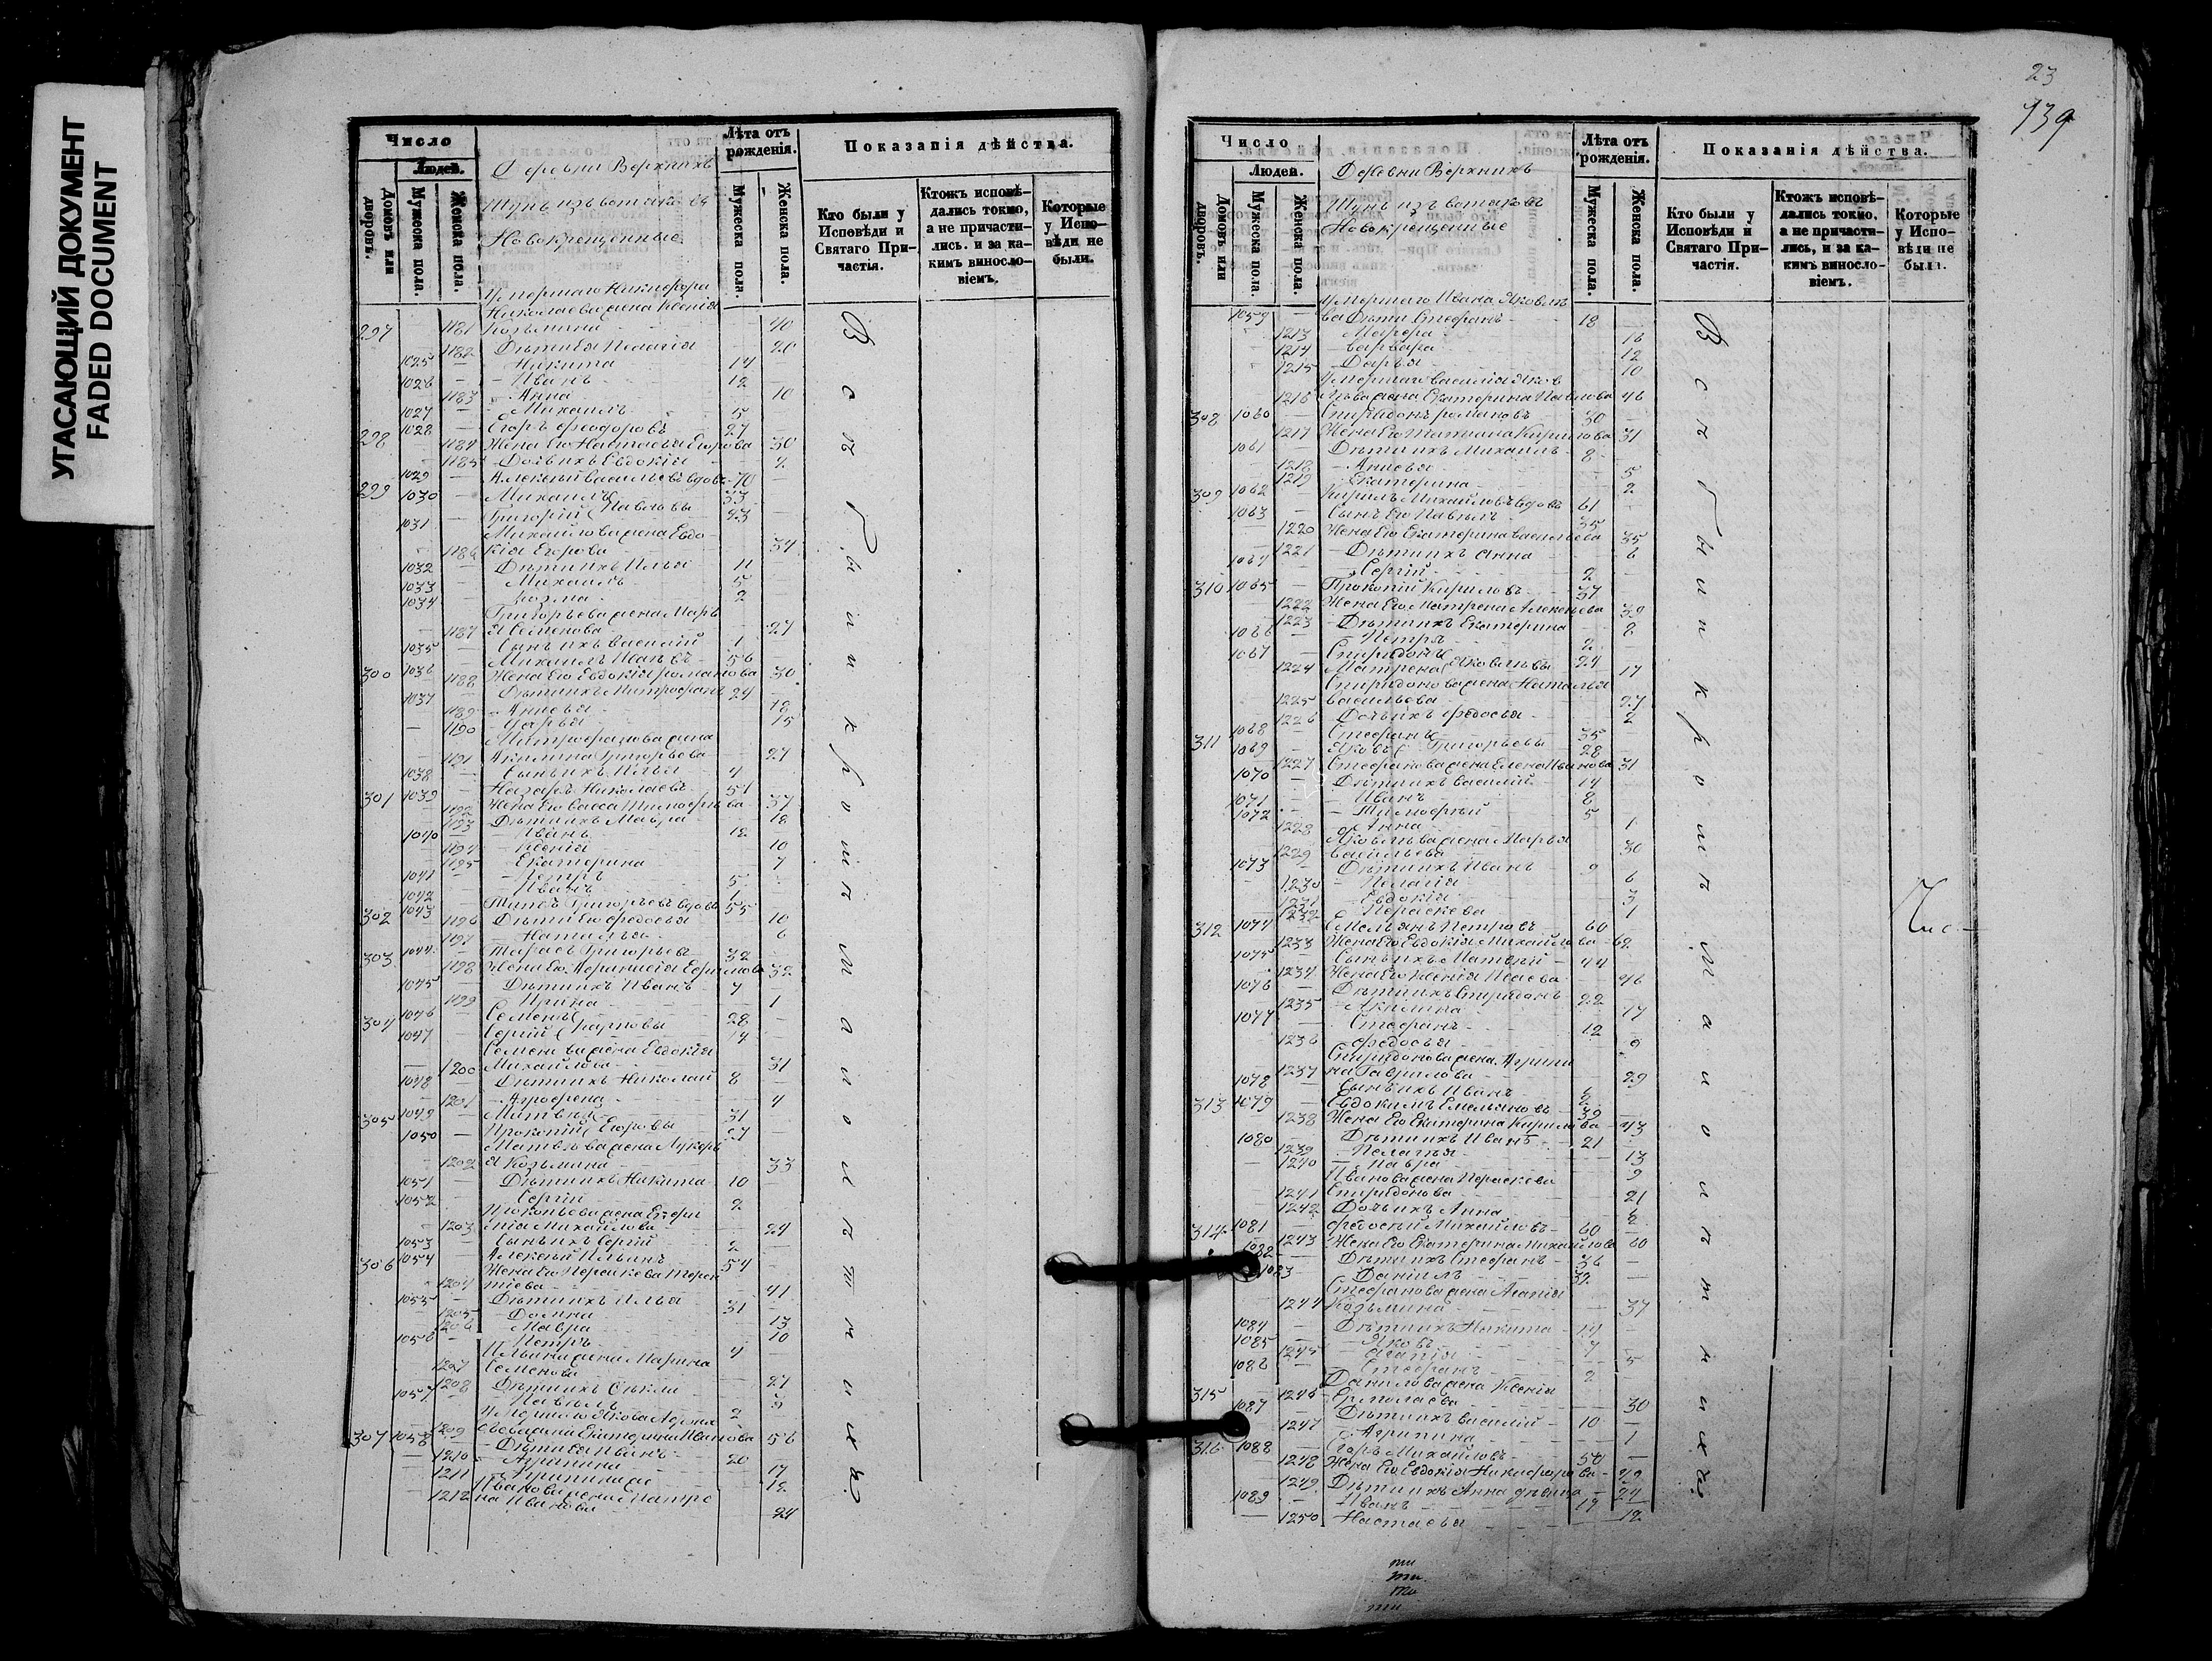 УГАСАЮЩИЙ ДОКУМЕНТ
FADED DOCUMENT
Число
Людей.
Домовъ или дворовъ.
Мужеска пола.
Женска пола.
Деревни Верхнихъ
изъ вотяковъ
Новокрещенные
Лѣта отъ рожденія.
Мужеска пола.
Женска пола.
Показанія дѣйства.
Кто были у Исповѣди и Святаго При-частія.
Ктожъ исповѣ-дались токмо, а не причасти-лись. и за ка-кимъ винослo-віемъ.
Которые у Испо-вѣди не были.
Умершаго Никифора
Николаева жена Ксенія
297 1181 Козьмина 40
1182 Дѣти ея Пелагія 20
1025 Никита 14
1026 Иванъ 12
1183 Анна 10
1027 Михаилъ 5
298 1028 Егоръ Феодоровъ 27
1184 Жена его Настасья Егорова 30
1185 Дочь ихъ Евдокія 2
299 1029 Алексѣй Васильевъ вдовъ 70
1030 Михаилъ 33
1031 Григорій Павловы 23
Михайлова жена Евдо-
1186 кія Егорова 34
1032 Дѣти ихъ Илья 11
1033 Михаилъ 5
1034 Козма 2
Григорьева жена Марь
1187 я Семенова 27
1035 Сынъ ихъ Василій 1
300 1036 Михаилъ Ивановъ 56
1188 Жена его Евдокія Романова 30
1037 Дѣти ихъ Митрофанъ 24
1189 Анисья 18
1190 Дарья 15
Митрофанова жена
1191 Акилина Григорьева 27
1038 Сынъ ихъ Илья 4
301 1039 Назаръ Николаевъ 51
1192 Жена его Васса Тимофеева 37
1193 Дѣти ихъ Мавра 18
1040 Иванъ 12
1194 Ксенія 10
1195 Екатерина 7
1041 Петръ 5
1042 Иванъ 1
302 1043 Титъ Григорьевъ вдовъ 55
1196 Дѣти его Федосья 10
1197 Наталья 6
303 1044 Тарасъ Григорьевъ 32
1198 Жена его 32
1045 Дѣти ихъ Иванъ 4
1199 Ирина 1
304 1046 Семенъ 28
1047 Сергій Карповы 14
Семенова жена Евдокія
1200 Михайлова 31
1048 Дѣти ихъ Николай 8
1201 Агрофена 4
305 1049 Матвѣй 31
1050 Прокопій Егоровы 27
Матвѣева жена Лукерь
1202 я Козьмина 33
1051 Дѣти ихъ Никита 10
1052 Сергій 2
Прокопьева жена Евфи
1203 мія Михайлова 24
1053 Сынъ ихъ Сергій 2
306 1054 Алексѣй Ильинъ 54
Жена его Пераскева Терен
1204 тіева 41
1055 Дѣти ихъ Илья 31
1205 Домна 13
1206 Мавра 10
1056 Петръ 4
Ильина жена Марина
1207 Семенова 27
1208 Дѣти ихъ 5
1057 Павелъ 2
307 1058 1209 Екатерина Иванова 56
Дѣти ея Иванъ 20
1210 Агрипина 17
1211 12
Иванова жена Матре
1212 на Иванова 24
В с ѣ б ы л и к р о м ѣ м а л о л ѣ т н и х ъ
23
139
Число
Людей.
Домовъ или дворовъ.
Мужеска пола.
Женска пола.
Деревни Верхнихъ
изъ вотяковъ
Новокрещенные
Лѣта отъ рожденія.
Мужеска пола.
Женска пола.
Показанія дѣйства.
Кто были у Исповѣди и Святаго При-частія.
Ктожъ исповѣ-дались токмо, а не причасти-лись, и за ка-кимъ винослo-віемъ.
Которые у Испо-вѣди не были.
Умершаго Ивана Яковле
1059 ва Дѣти Стефанъ 18
1213 Марфа 16
1214 Варвара 12
1215 Дарья 10
Умершаго Василія Яков
1216 лева жена Екатерина Павлова 46
308 1060 Спиридонъ Романовъ 30
1217 Жена его Татиана Кирилова 31
1061 Дѣти ихъ Михаилъ 8
1218 Анисья 5
1219 Екатерина 2
309 1062 Кирилъ Михайловъ вдовъ 61
1063 Сынъ его Павелъ 35
1220 Жена его Екатерина Васильева 35
1221 Дѣти ихъ Анна 6
1064 Сергій 2
310 1065 Прокопій Кириловъ 37
1222 Жена его Матрена Алексеева 39
1223 Дѣти ихъ Екатерина 8
1066 Петръ 2
1067 Спиридонъ 24
1224 Матрена Яковлевы 17
Спиридонова жена Наталья
1225 Васильева 27
1226 Дочь ихъ Федосья 2
311 1068 Стефанъ 35
1069 Яковъ Григорьевы 28
1227 Стефанова жена Елена Иванова 31
1070 Дѣти ихъ Василій 14
1071 Иванъ 8
1072 Тимофѣй 5
1228 Анна 1
Яковлева жена Марья
1229 Васильева 30
1073 Дѣти ихъ Иванъ 9
1230 Пелагія 6
1231 Евдокія 3
1232 Пераскева 1
312 1074 Емельянъ Петровъ 60
1233 Жена его Евдокія Михайлова 62
1075 Сынъ ихъ Матвѣй 44
1234 Жена его Ксенія Исаева 46
1076 Дѣти ихъ Спиридонъ 22
1235 Акилина 17
1077 Стефанъ 12
1236 Федосья 9
Спиридонова жена Агрипи
1237 на Гаврилова 29
1078 Сынъ ихъ Иванъ 2
313 1079 Евдокимъ Емельяновъ 39
1238 Жена его Екатерина Кирилова 43
1080 Дѣти ихъ Иванъ 21
1239 Пелагія 13
1240 Мавра 9
Иванова жена Пераскева
1241 Спиридонова 21
1242 Дочь ихъ Анна 2
314 1081 Федосѣй Михайловъ 60
1243 Жена его Екатерина Михайлова 60
1082 Дѣти ихъ Стефанъ 36
1083 Даніилъ 32
Стефанова жена Агапія
1244 Козьмина 37
1084 Дѣти ихъ Никита 14
1085 Яковъ 7
1245 Агапія 5
1086 Стефанъ 2
315 Данилова жена Ксенія
1246 Ермолаева 30
1087 Дѣти ихъ Василій 10
1247 Агрипина 1
316 1088 Егоръ Михайловъ 50
1248 Жена его Евдокія Никифорова 49
1249 Дѣти ихъ Анна дѣвица 24
1089 Иванъ 17
1250 Настасья 12
В с ѣ б ы л и к р о м ѣ м а л о л ѣ т н и х ъ
Чис-